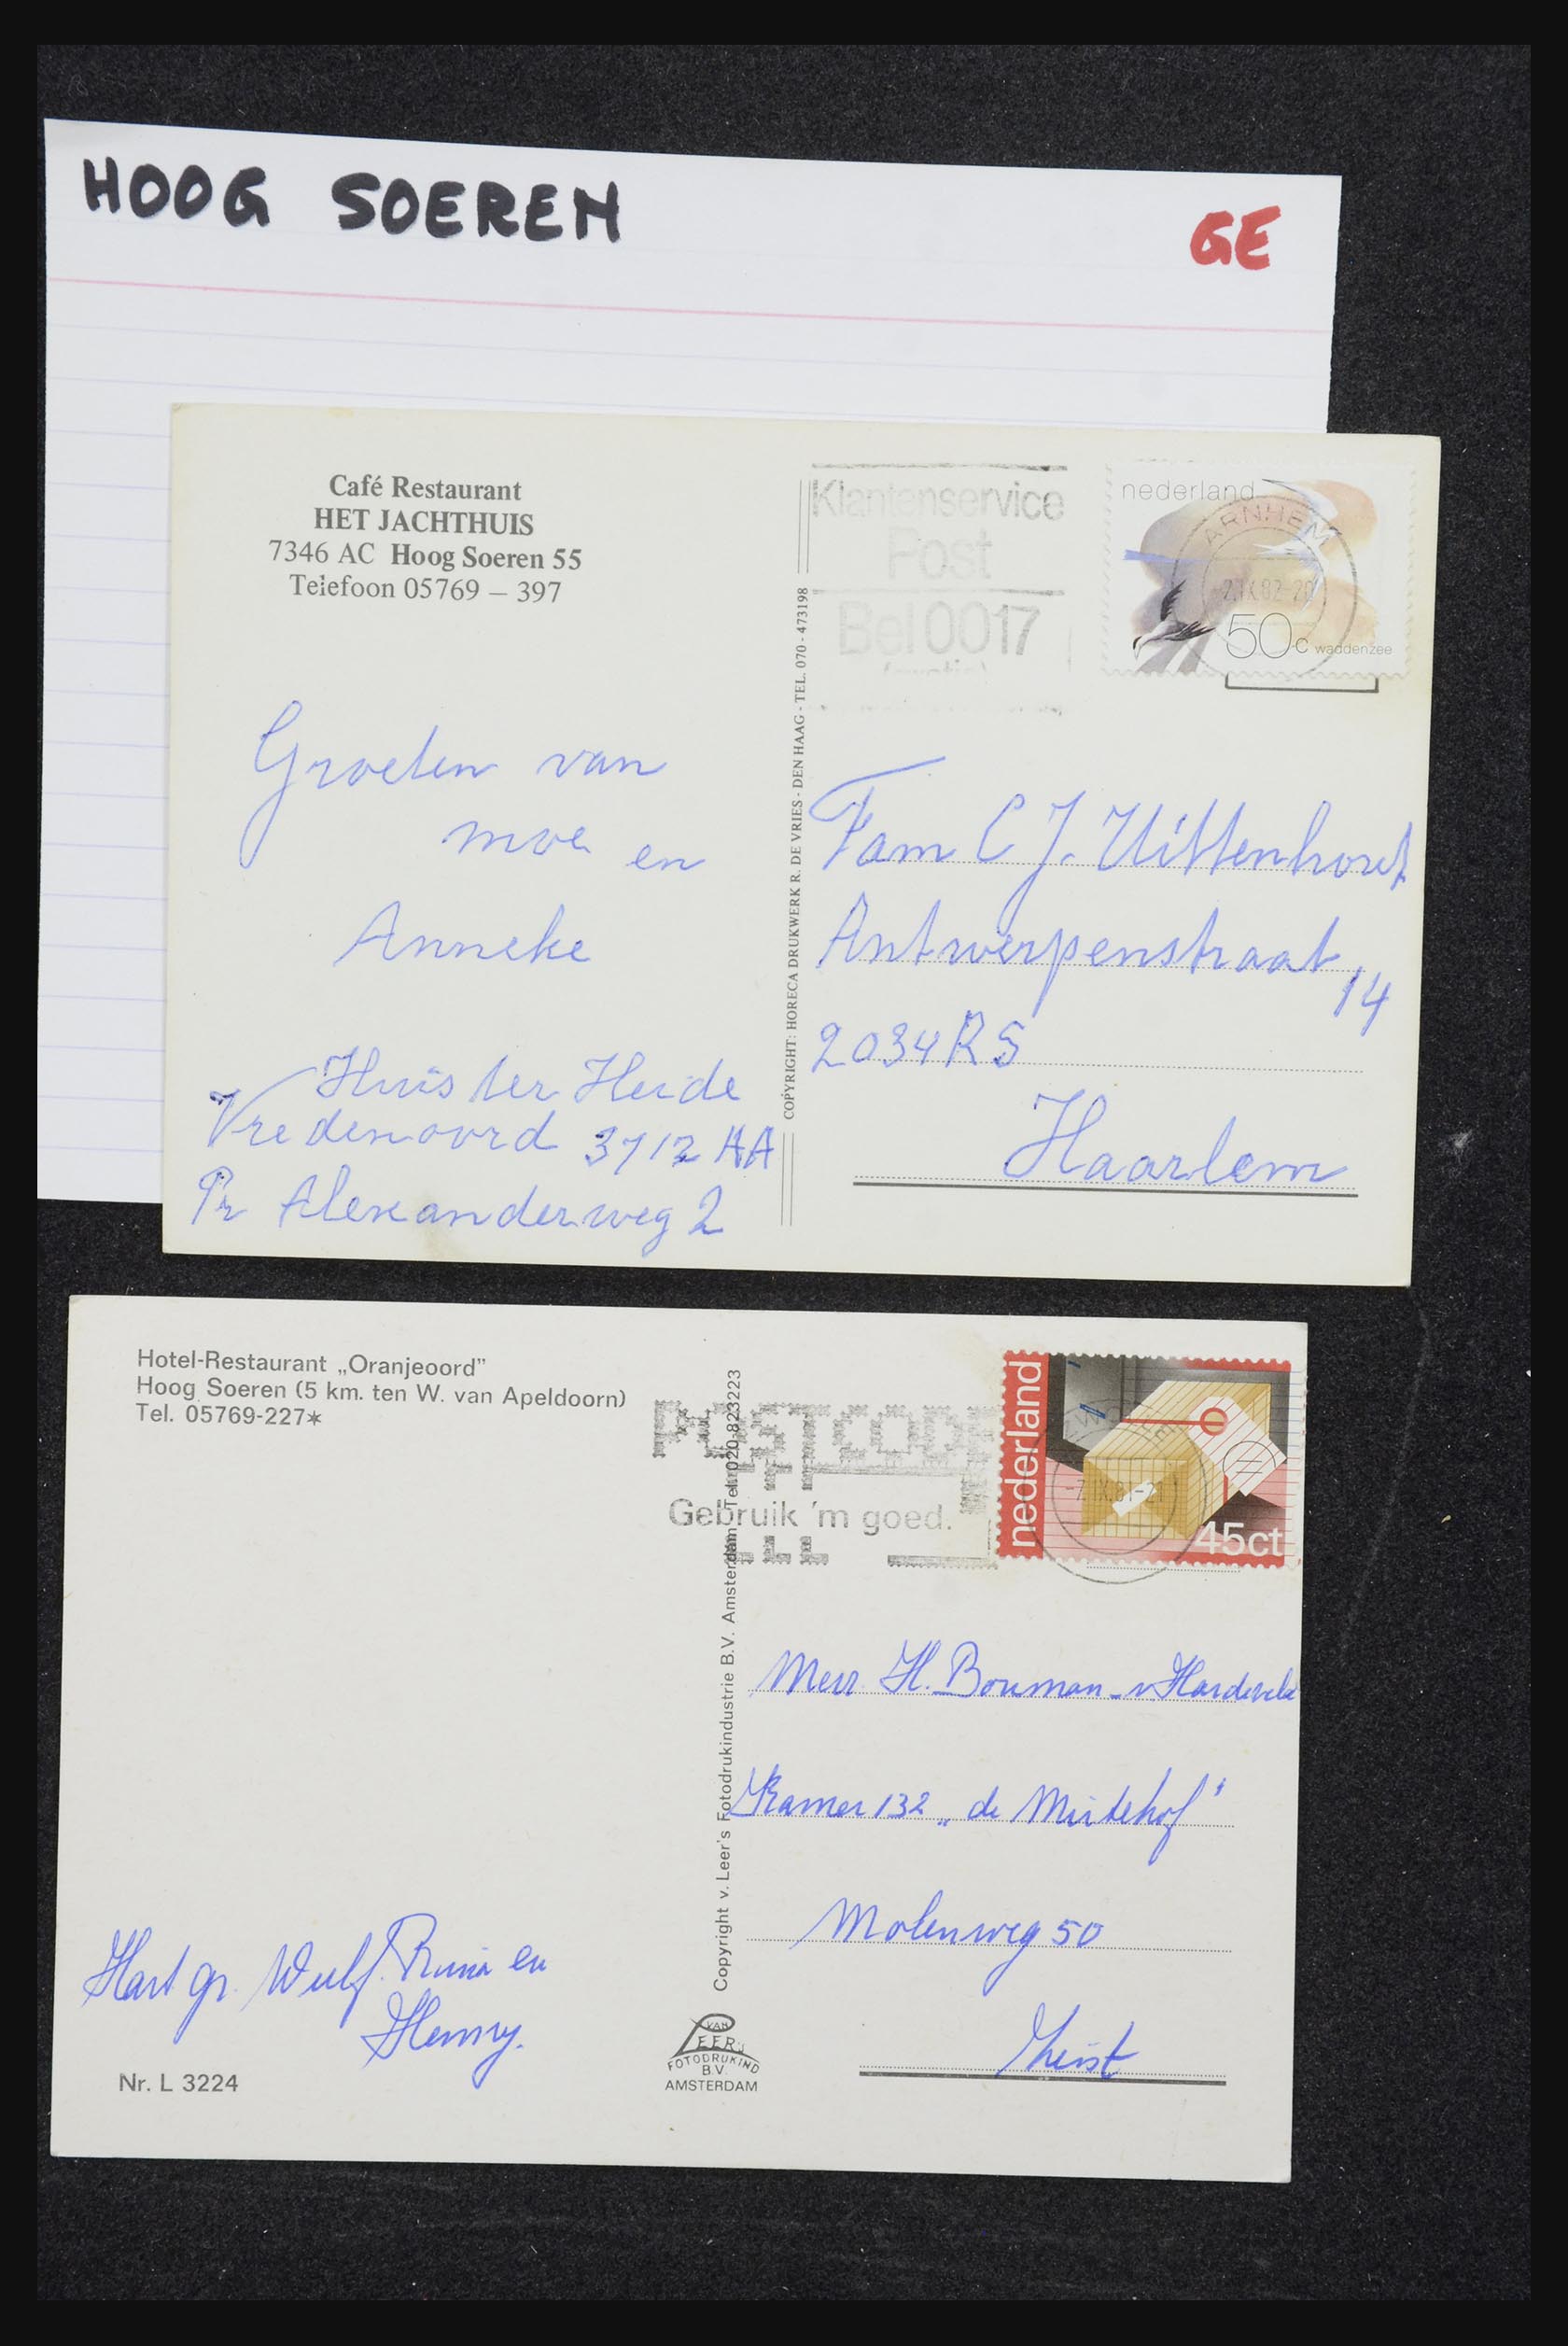 HOOG SOEREN
GE
Café Restaurant
HET JACHTHUIS
7346 AC Hoog Soeren 55
Telefoon 05769 – 397
Klantenservice
Post
Bel 0017
nederland
ARNHEM
50 c waddenzee
COPYRIGHT: HORECA DRUKWERK R. DE VRIES - DEN HAAG - TEL. 070 - 473198
Groeten van
moe en
Anneke
Huis ter Heide
Vredenoord 3712 AA
Pr Alexanderweg 2
Fam C J. Uittenhout
Antwerpenstraat 14
2034 RS
Haarlem
Hotel-Restaurant „Oranjeoord”
Hoog Soeren (5 km. ten W. van Apeldoorn)
Tel. 05769-227*
POSTCODE
Gebruik 'm goed.
nederland
45ct
Copyright v. Leer's Fotodrukindustrie B.V. Amsterdam - Tel. 020-823223
Mevr H. Bouman - v Hardeveld
Kamer 132 „ de Mirtehof "
Molenweg 50
Zeist
Hart gr. Wulf. en
Henny.
Nr. L 3224
VAN
LEER'S
FOTODRUKIND
B.V.
AMSTERDAM